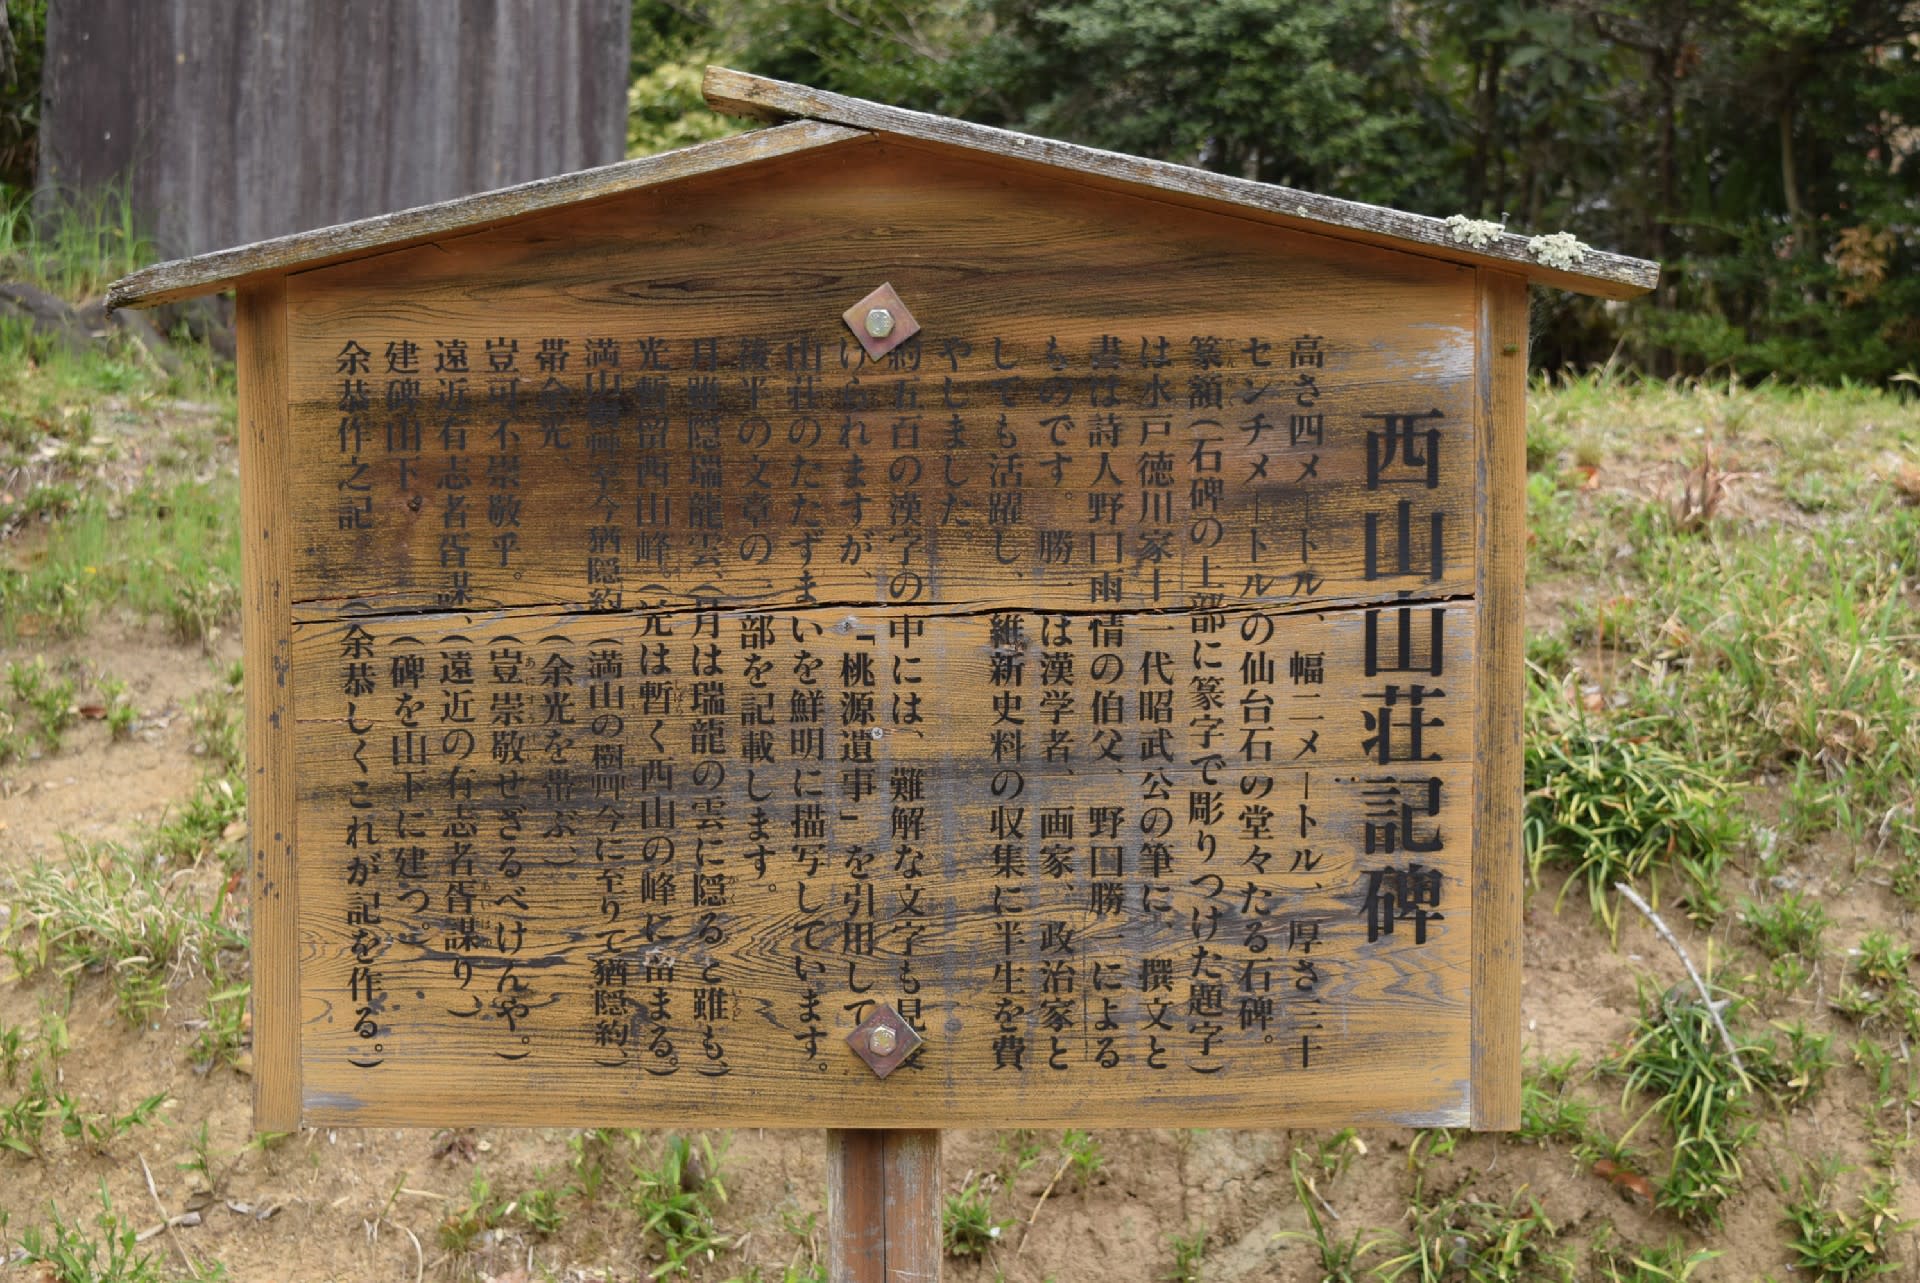 西山山荘記碑
高さ四メートル、幅二メートル、厚さ三十
センチメートルの仙台石の堂々たる石碑。
篆額(石碑の上部に篆字で彫りつけた題字)
は水戸徳川家十一代昭武公の筆に、撰文と
書は詩人野口雨情の伯父、野口勝一による
ものです。勝一は漢学者、画家、政治家と
しても活躍し、維新史料の収集に半生を費
やしました。
約五百の漢字の中には、難解な文字も見受
けられますが、「桃源遺事」を引用して
山荘のたたずまいを鮮明に描写しています。
後半の文章の一部を記載します。
月雖隠瑞龍雲、(月は瑞龍の雲に隠ると雖も、)
光暫留西山峰。(光は暫く西山の峰に留まる。)
満山樹艸至今猶隠約(満山の樹艸今に至りて猶隠約、)
帯余光、(余光を帯ぶ、)
豈可不崇敬乎。(豈崇敬せざるべけんや。)
遠近有志者胥謀、(遠近の有志者胥謀り、)
建碑山下。(碑を山下に建つ。)
余恭作之記(余恭しくこれが記を作る。)